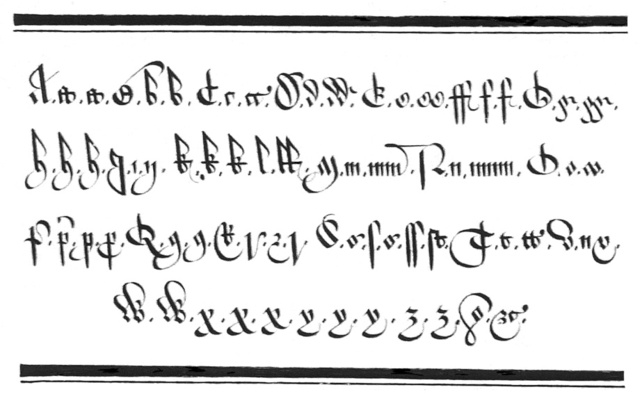 A.a.a.B.b.b.C.c.cc.D.d.dd.E.e.ee.ff.f.f.G.g.gg.
h.h.h.J.i.y.k.k.k.l.ll.M.m.mm.N.n.nn.O.o.oo.
p.p.p.p.Q.q.q.R.r.r.r.S.s.ſ.s.ſſ.ſt.T.t.tt.V.u.v.
W.W.x.x.x.y.y.y.z.z.&.&c.